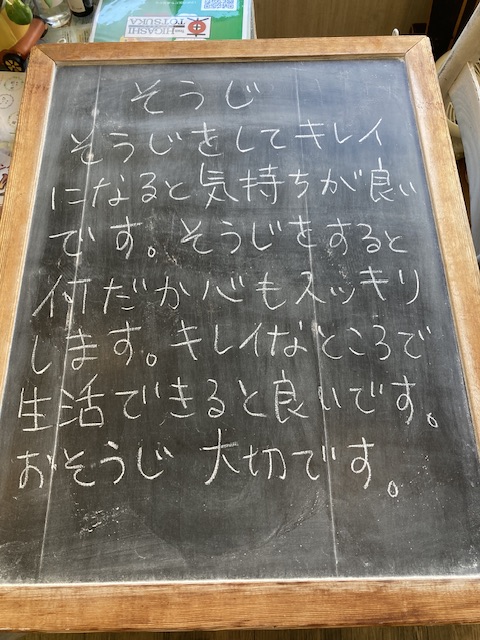 HIGASHI
TOTSUKA
そうじ
そうじをしてキレイ
になると気持ちが良い
です。そうじをすると
何だか心もスッキリ
します。キレイなところで
生活できると良いです。
おそうじ 大切です。